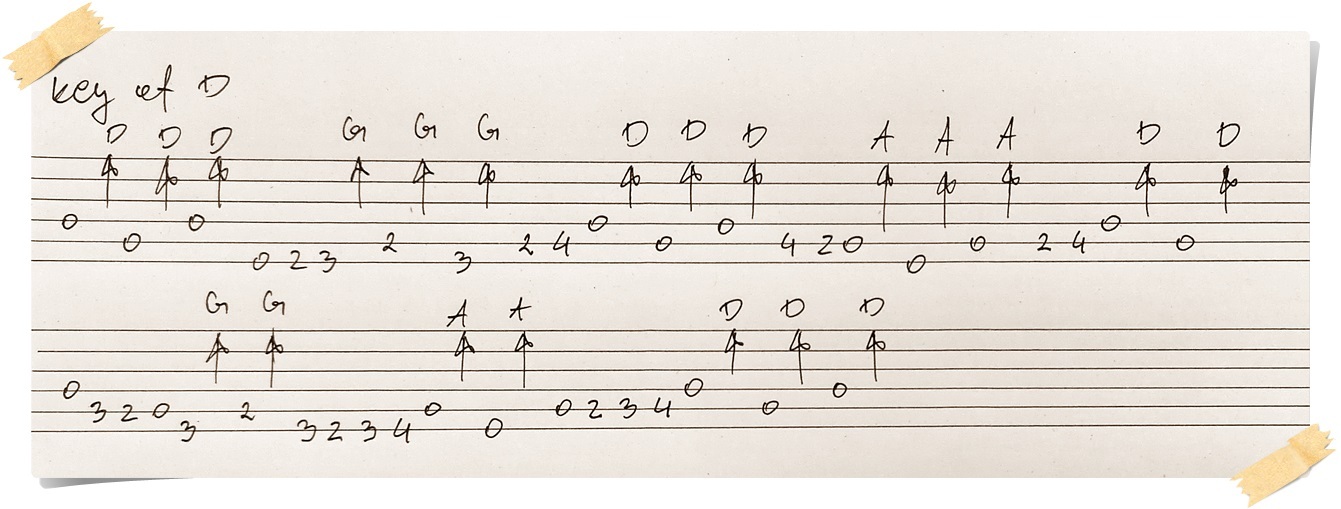 key of D
D D D G G G D D D A A A D D
0 0 0 0 0
0 2 2 4 0 4 2 0 0 2 4 0
0 2 3 3 0
G G A A D D D
0 0 0
3 2 0 2 0 0 2 3 4 0
3 3 2 3 4 0